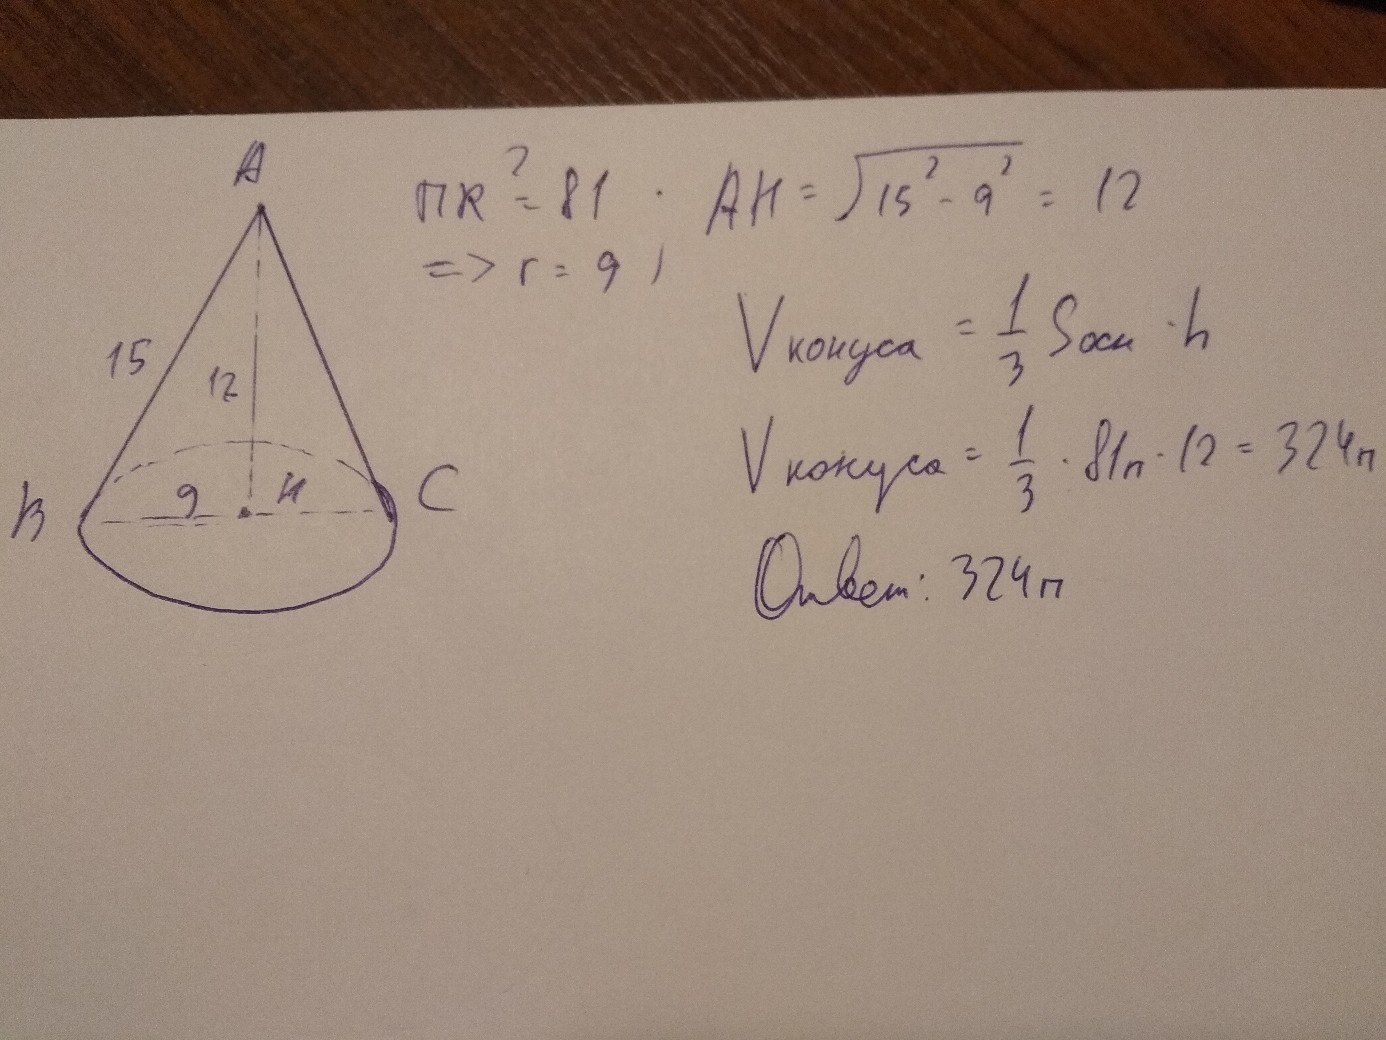 A
15
12
9
H
B
C
ПR² = 81
=> r = 9 ;
AH = √15² - 9² = 12
Vконуса = 1/3 Sосн · h
Vконуса = 1/3 · 81п · 12 = 324п
Ответ: 324п